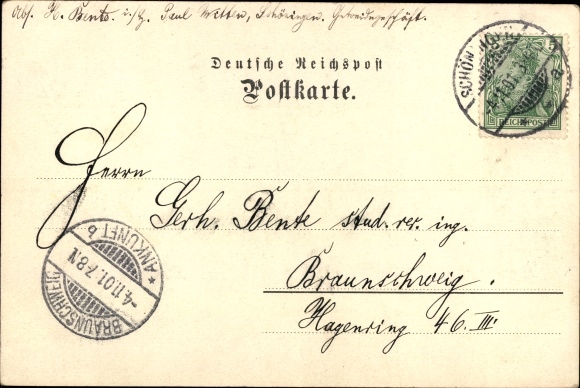 Abs. H. Bente. i./H. Paul Witten, Schöningen. Getreidegeschäft.
Deutsche Reichspost
Postkarte.
SCHÖNINGEN
4.11.01.
a
REICHSPOST
Herrn
Gerh. Bente stud. rer. ing.
Braunschweig.
Hagenring 46. III.
BRAUNSCHWEIG
-4.11.01.7-8.N.
* ANKUNFT b